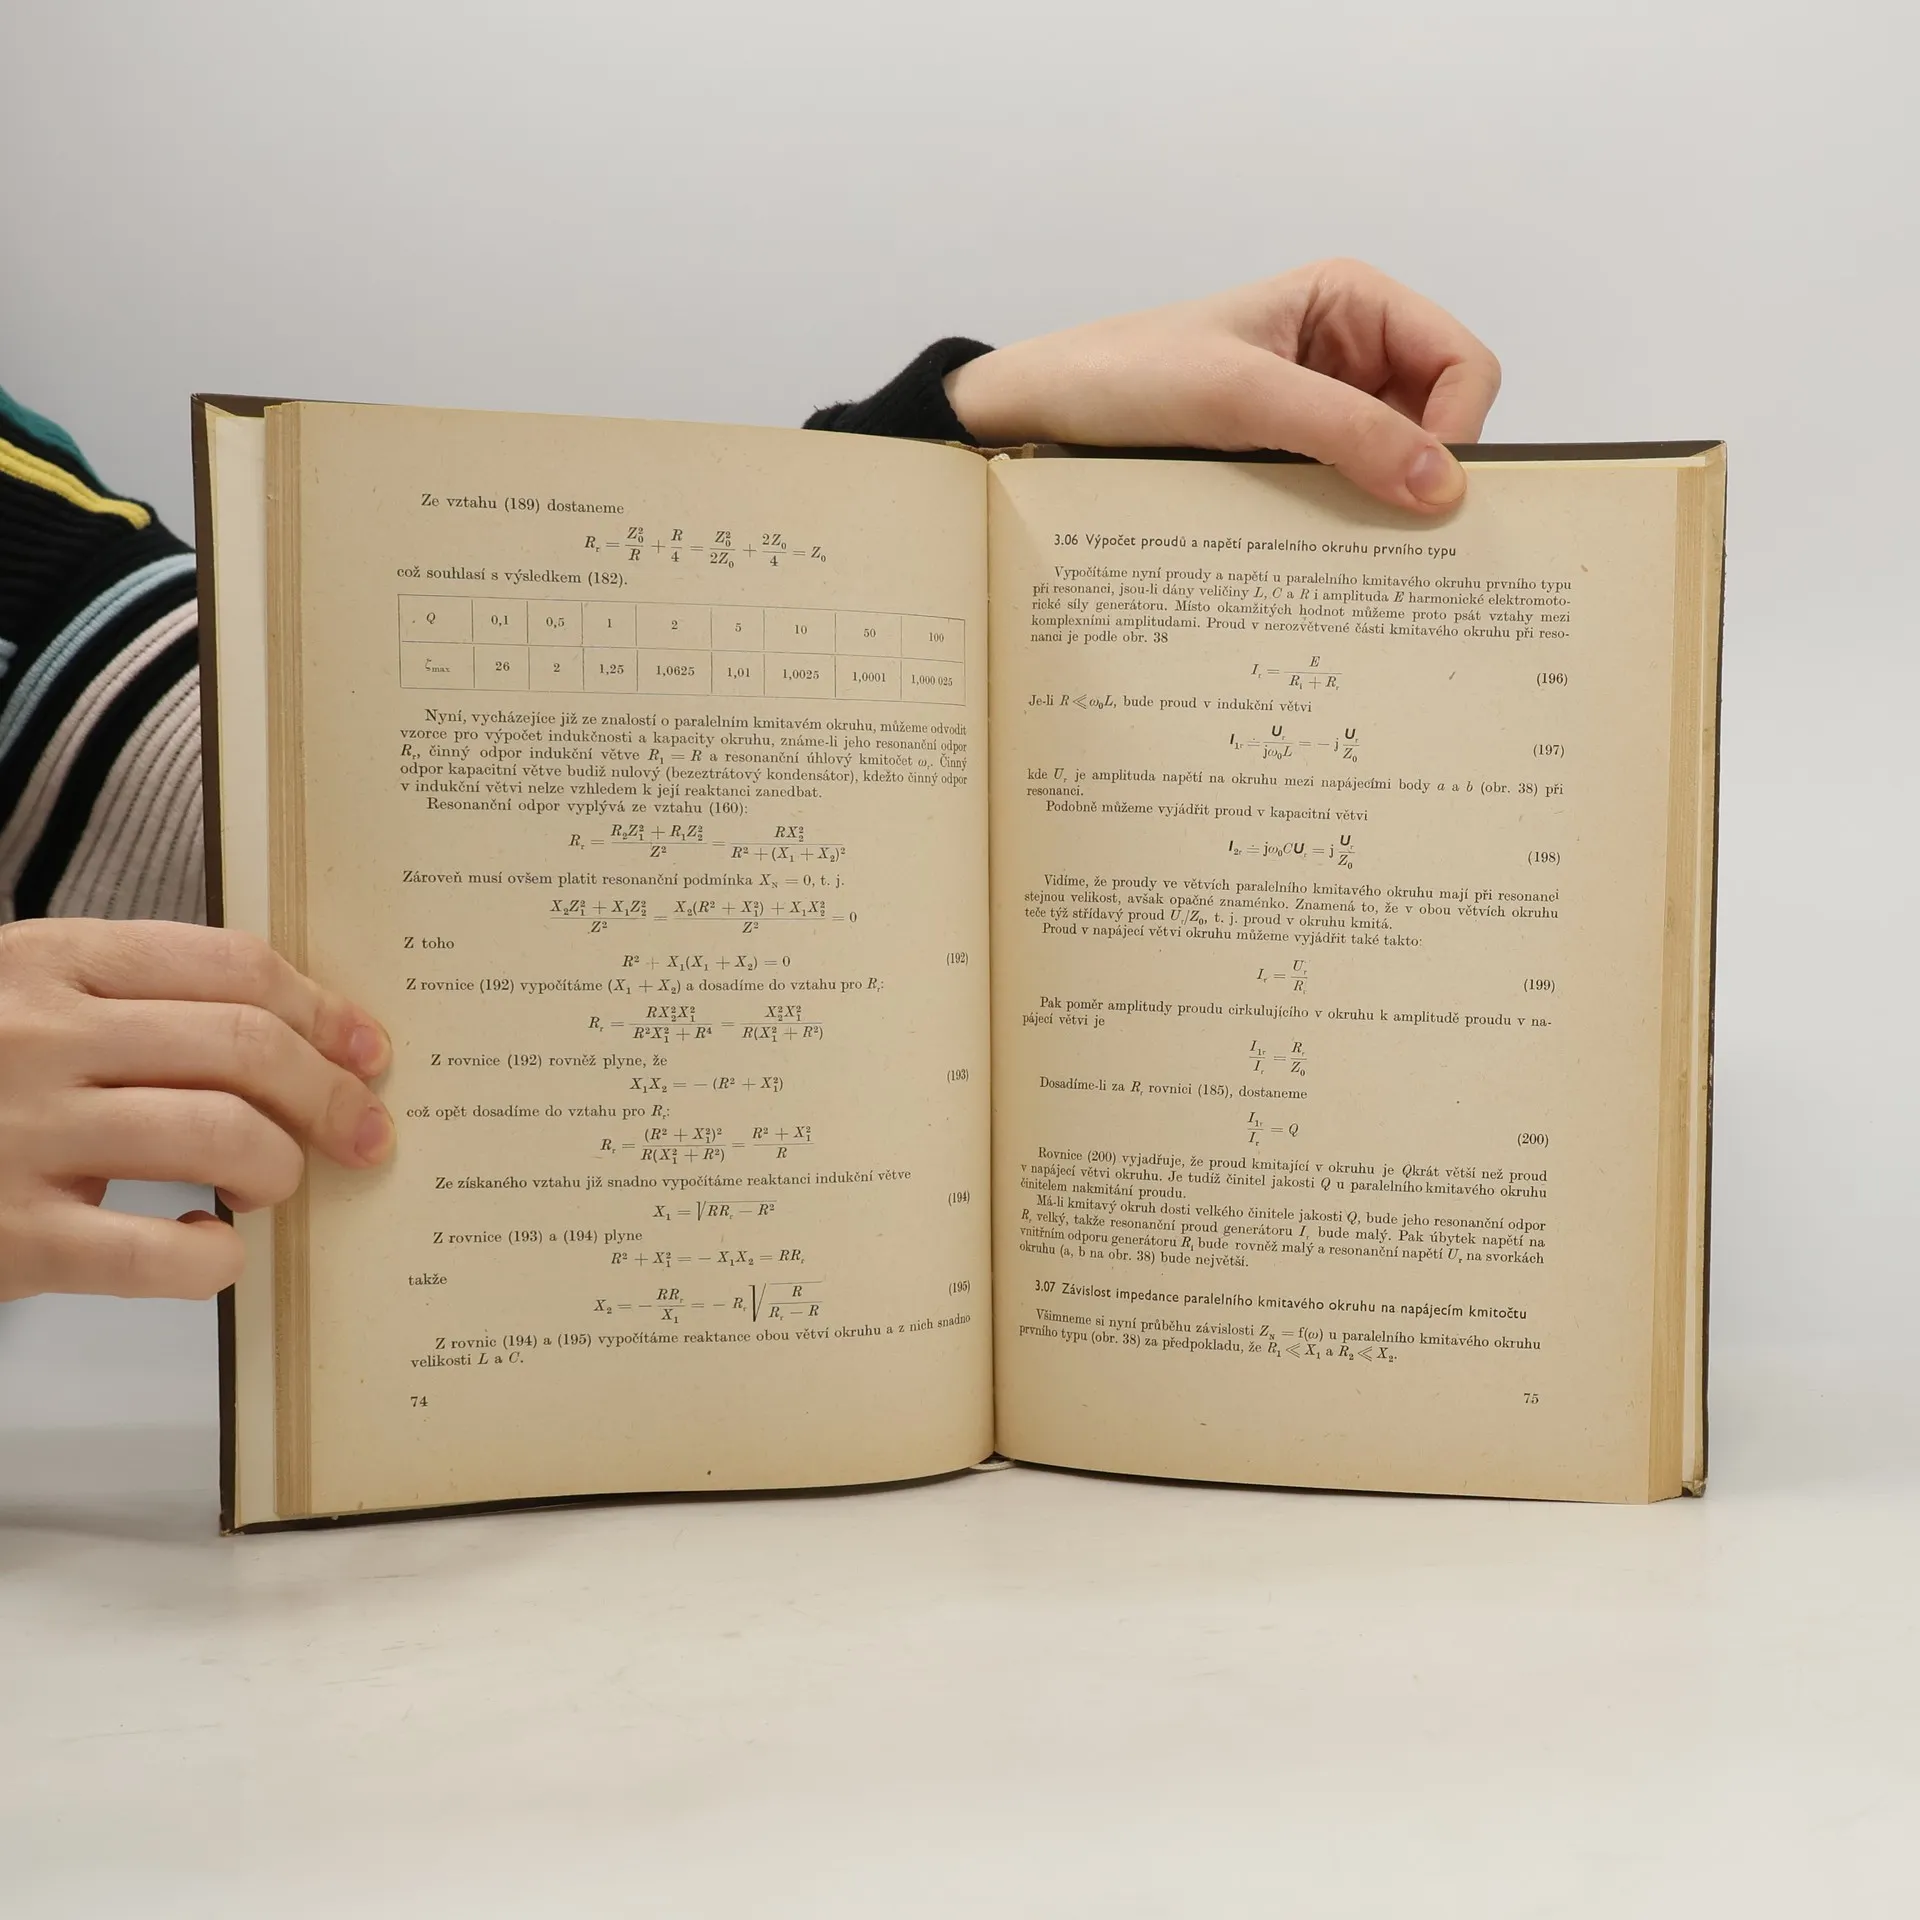 Ze vztahu (189) dostaneme
R_r = Z_0²/R + R/4 = Z_0²/2Z_0 + 2Z_0/4 = Z_0
což souhlasí s výsledkem (182).
Q 0,1 0,5 1 2 5 10 50 100
ζ_max 26 2 1,25 1,0625 1,01 1,0025 1,0001 1,000 025
Nyní, vycházejíce již ze znalostí o paralelním kmitavém okruhu, můžeme odvodit
vzorce pro výpočet indukčnosti a kapacity okruhu, známe-li jeho resonanční odpor
R_r, činný odpor indukční větve R_1 = R a resonanční úhlový kmitočet ω_r. Činný
odpor kapacitní větve budiž nulový (bezeztrátový kondensátor), kdežto činný odpor
v indukční větvi nelze vzhledem k její reaktanci zanedbat.
Resonanční odpor vyplývá ze vztahu (160):
R_r = (R_2Z_1² + R_1Z_2²)/Z² = RX_2²/(R² + (X_1 + X_2)²)
Zároveň musí ovšem platit resonanční podmínka X_N = 0, t. j.
(X_2Z_1² + X_1Z_2²)/Z² = (X_2(R² + X_1²) + X_1X_2²)/Z² = 0
Z toho
R² + X_1(X_1 + X_2) = 0 (192)
Z rovnice (192) vypočítáme (X_1 + X_2) a dosadíme do vztahu pro R_r:
R_r = RX_2²X_1²/(R²X_1² + R⁴) = X_2²X_1²/(R(X_1² + R²))
Z rovnice (192) rovněž plyne, že
X_1X_2 = − (R² + X_1²) (193)
což opět dosadíme do vztahu pro R_r:
R_r = (R² + X_1²)²/(R(X_1² + R²)) = (R² + X_1²)/R
Ze získaného vztahu již snadno vypočítáme reaktanci indukční větve
X_1 = √(RR_r − R²) (194)
Z rovnice (193) a (194) plyne
R² + X_1² = − X_1X_2 = RR_r
takže
X_2 = − RR_r/X_1 = − R_r √(R/(R_r − R)) (195)
Z rovnic (194) a (195) vypočítáme reaktance obou větví okruhu a z nich snadno
velikosti L a C.
74
3.06 Výpočet proudů a napětí paralelního okruhu prvního typu
Vypočítáme nyní proudy a napětí u paralelního kmitavého okruhu prvního typu
při resonanci, jsou-li dány veličiny L, C a R i amplituda E harmonické elektromoto-
rické síly generátoru. Místo okamžitých hodnot můžeme proto psát vztahy mezi
komplexními amplitudami. Proud v nerozvětvené části kmitavého okruhu při reso-
nanci je podle obr. 38
I_r = E/(R_i + R_r) (196)
Je-li R ≪ ω_0L, bude proud v indukční větvi
I_1r ≐ U_r/jω_0L = − j U_r/Z_0 (197)
kde U_r je amplituda napětí na okruhu mezi napájecími body a a b (obr. 38) při
resonanci.
Podobně můžeme vyjádřit proud v kapacitní větvi
I_2r ≐ jω_0CU_r = j U_r/Z_0 (198)
Vidíme, že proudy ve větvích paralelního kmitavého okruhu mají při resonanci
stejnou velikost, avšak opačné znaménko. Znamená to, že v obou větvích okruhu
teče týž střídavý proud U_r/Z_0, t. j. proud v okruhu kmitá.
Proud v napájecí větvi okruhu můžeme vyjádřit také takto:
I_r = U_r/R_r (199)
Pak poměr amplitudy proudu cirkulujícího v okruhu k amplitudě proudu v na-
pájecí větvi je
I_1r/I_r = R_r/Z_0
Dosadíme-li za R_r rovnici (185), dostaneme
I_1r/I_r = Q (200)
Rovnice (200) vyjadřuje, že proud kmitající v okruhu je Qkrát větší než proud
v napájecí větvi okruhu. Je tudíž činitel jakosti Q u paralelního kmitavého okruhu
činitelem nakmitání proudu.
Má-li kmitavý okruh dosti velkého činitele jakosti Q, bude jeho resonanční odpor
R_r velký, takže resonanční proud generátoru I_r bude malý. Pak úbytek napětí na
vnitřním odporu generátoru R_i bude rovněž malý a resonanční napětí U_r na svorkách
okruhu (a, b na obr. 38) bude největší.
3.07 Závislost impedance paralelního kmitavého okruhu na napájecím kmitočtu
Všimneme si nyní průběhu závislosti Z_N = f(ω) u paralelního kmitavého okruhu
prvního typu (obr. 38) za předpokladu, že R_1 ≪ X_1 a R_2 ≪ X_2.
75